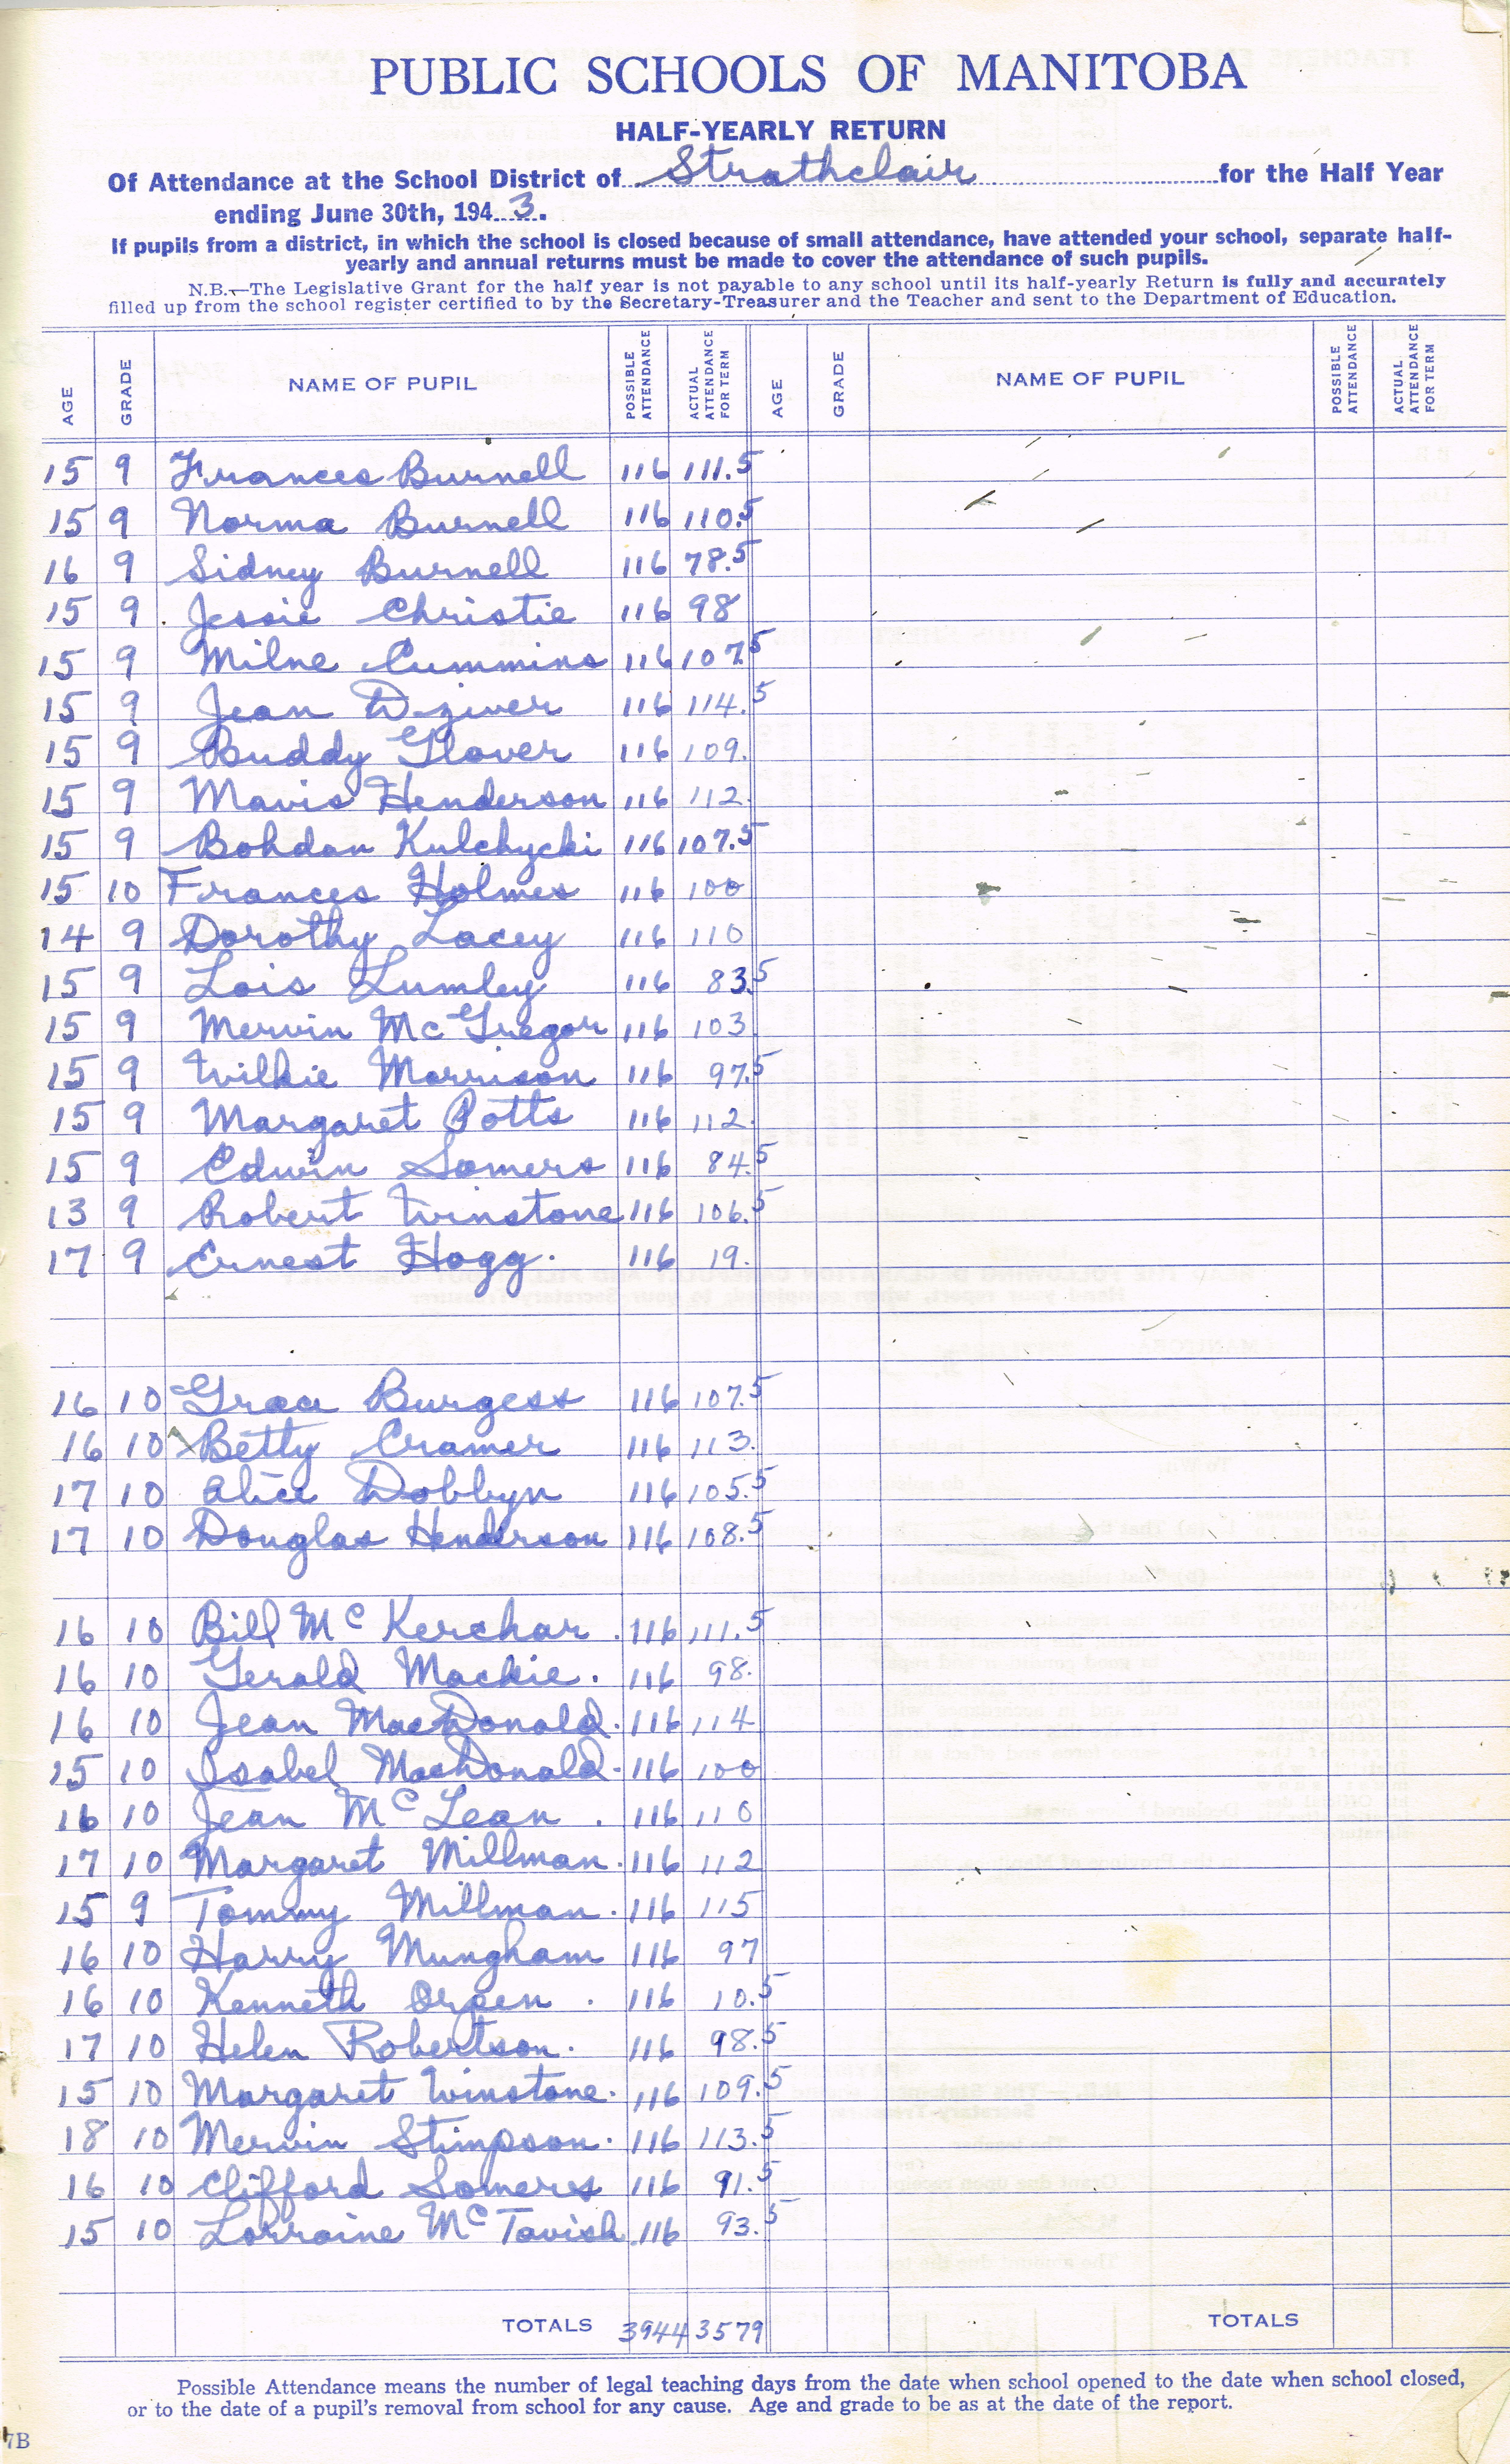 PUBLIC SCHOOLS OF MANITOBA
HALF-YEARLY RETURN
Of Attendance at the School District of Strathclair for the Half Year
ending June 30th, 194 3.
If pupils from a district, in which the school is closed because of small attendance, have attended your school, separate half-
yearly and annual returns must be made to cover the attendance of such pupils.
N.B.—The Legislative Grant for the half year is not payable to any school until its half-yearly Return is fully and accurately
filled up from the school register certified to by the Secretary-Treasurer and the Teacher and sent to the Department of Education.
AGE GRADE NAME OF PUPIL POSSIBLE ATTENDANCE ACTUAL ATTENDANCE FOR TERM AGE GRADE NAME OF PUPIL POSSIBLE ATTENDANCE ACTUAL ATTENDANCE FOR TERM
15 9 Frances Burnell 116 111.5
15 9 Norma Burnell 116 110.5
16 9 Sidney Burnell 116 78.5
15 9 Jessie Christie 116 98
15 9 Milne Cummins 116 107.5
15 9 Jean Dziver 116 114.5
15 9 Buddy Glover 116 109.
15 9 Mavis Henderson 116 112.
15 9 Bohdan Kulchycki 116 107.5
15 10 Frances Holmes 116 100
14 9 Dorothy Lacey 116 110
15 9 Lois Lumley 116 83.5
15 9 Mervin McGregor 116 103
15 9 Wilkie Morrison 116 97.5
15 9 Margaret Potts 116 112.
15 9 Edwin Somers 116 84.5
13 9 Robert Winstone 116 106.5
17 9 Ernest Hogg. 116 19.
16 10 Grace Burgess 116 107.5
16 10 Betty Cramer 116 113.
17 10 Alice Dobbyn 116 105.5
17 10 Douglas Henderson 116 108.5
16 10 Bill McKerchar . 116 111.5
16 10 Gerald Mackie . 116 98.
16 10 Jean MacDonald. 116 114
15 10 Isabel MacDonald. 116 100
16 10 Jean McLean . 116 110
17 10 Margaret Millman. 116 112
15 9 Tommy Millman. 116 115
16 10 Harry Mungham 116 97
16 10 Kenneth Orgen . 116 10.5
17 10 Helen Robertson. 116 98.5
15 10 Margaret Winstone. 116 109.5
18 10 Mervin Stimpson. 116 113.5
16 10 Clifford Somers 116 91.5
15 10 Lorraine McTavish. 116 93.5
TOTALS 3944 3579 TOTALS
Possible Attendance means the number of legal teaching days from the date when school opened to the date when school closed,
or to the date of a pupil's removal from school for any cause. Age and grade to be as at the date of the report.
7B